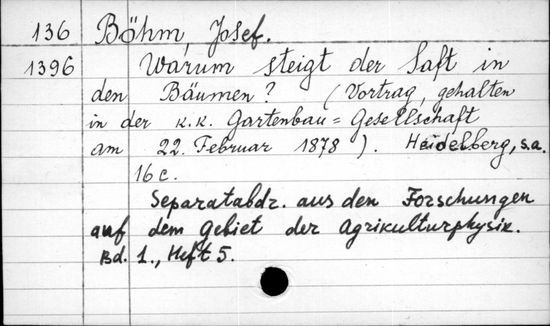 136 Böhm, Josef.
1396 Warum steigt der Saft in
den Bäumen? (Vortrag, gehalten
in der K.K. Gartenbau=Gesellschaft
am 22. Februar 1878). Heidelberg, s.a.
16 c.
Separatabdr. aus den Forschungen
auf dem Gebiet der Agrikulturphysik.
Bd. 1., Heft 5.